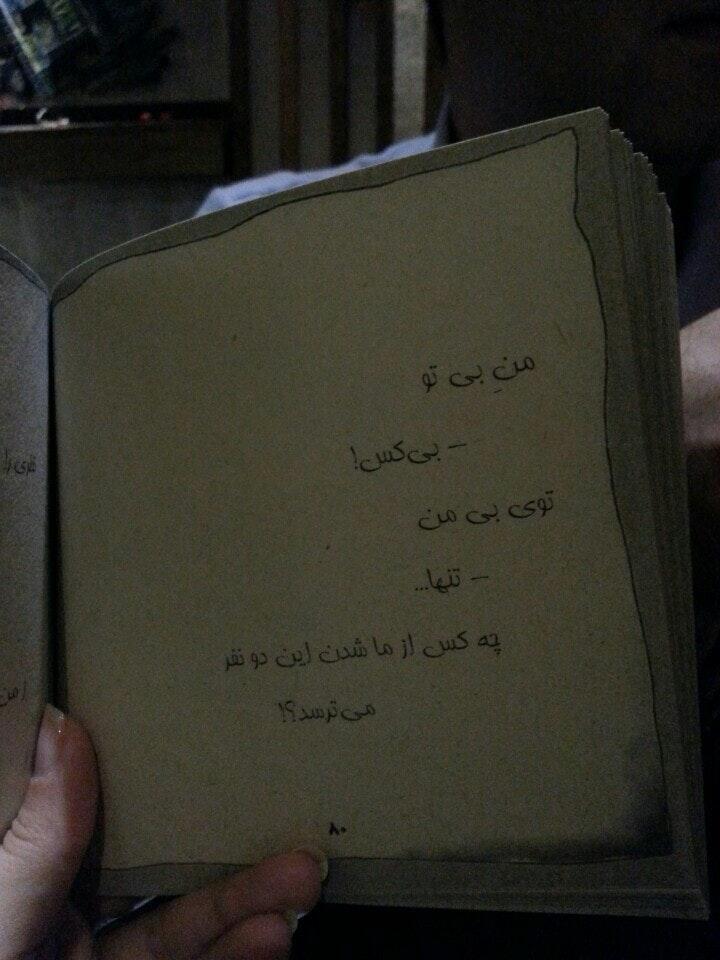 منِ بی تو
– بی‌کس!
توی بی من
– تنها...
چه کس از ما شدن این دو نفر
می‌ترسد؟!
۸۰